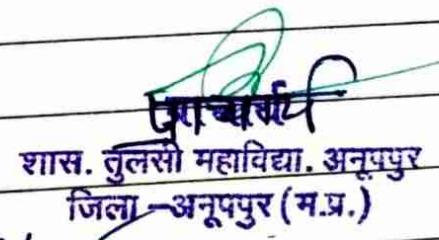 प्राचार्य
शास. तुलसी महाविद्या. अनूपपुर
जिला-अनूपपुर (म.प्र.)